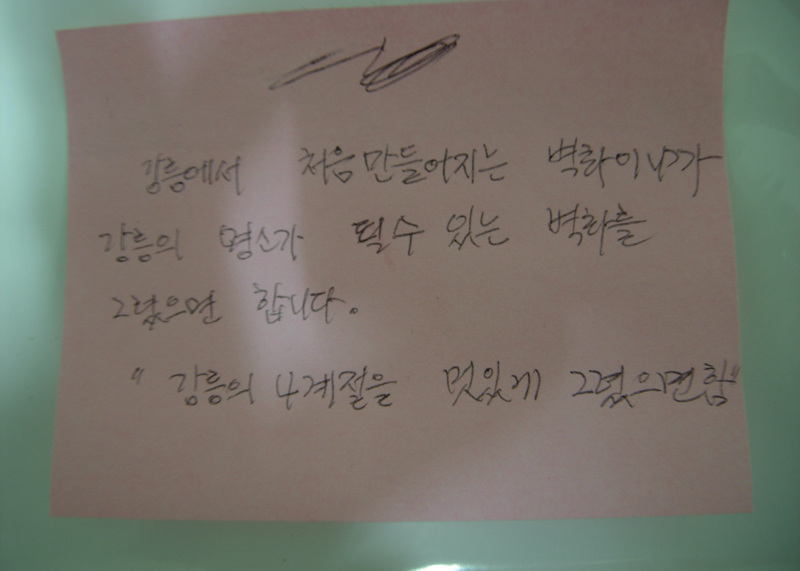 강릉에서 처음 만들어지는 벽화이니가
강릉의 명소가 될수 있는 벽화를
그렸으면 합니다.
"강릉의 4계절을 멋있게 그렸으면함"